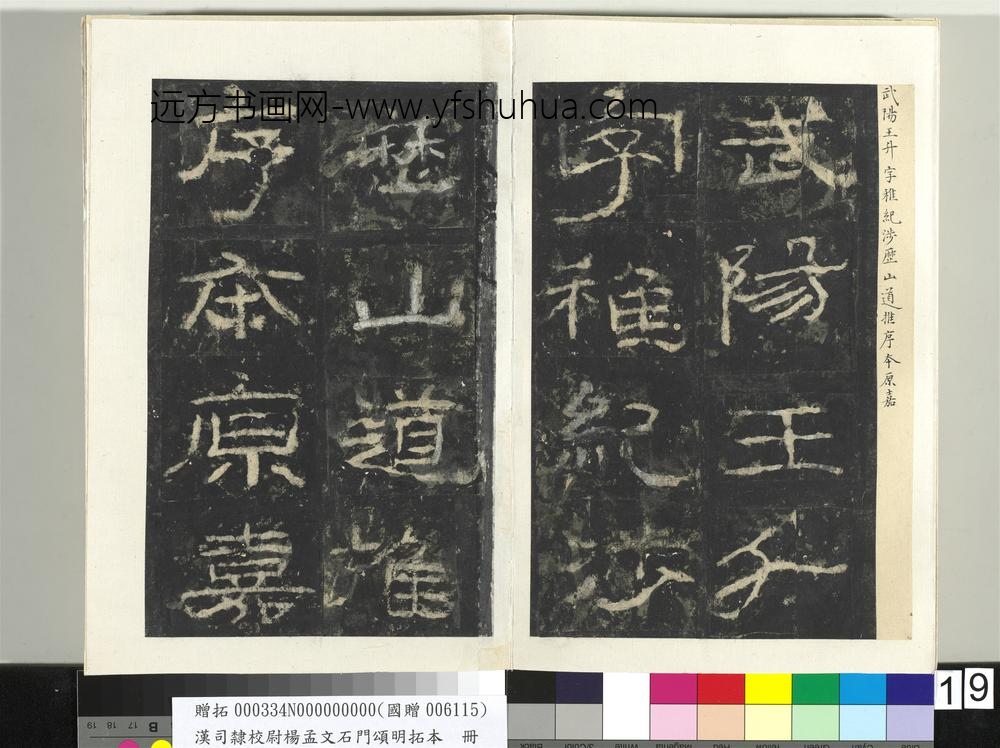 远方书画网-www.yfshuhua.com
武陽王升字稚紀涉歷山道推序本原嘉
武陽王升
字稚紀涉
歷山道推
序本原嘉
贈拓 000334N000000000(國贈 006115)
漢司隸校尉楊孟文石門頌明拓本 冊
19
19 18 17 16 15 B
Black 3/Color White Magenta Red Yellow Green Cyan Blue